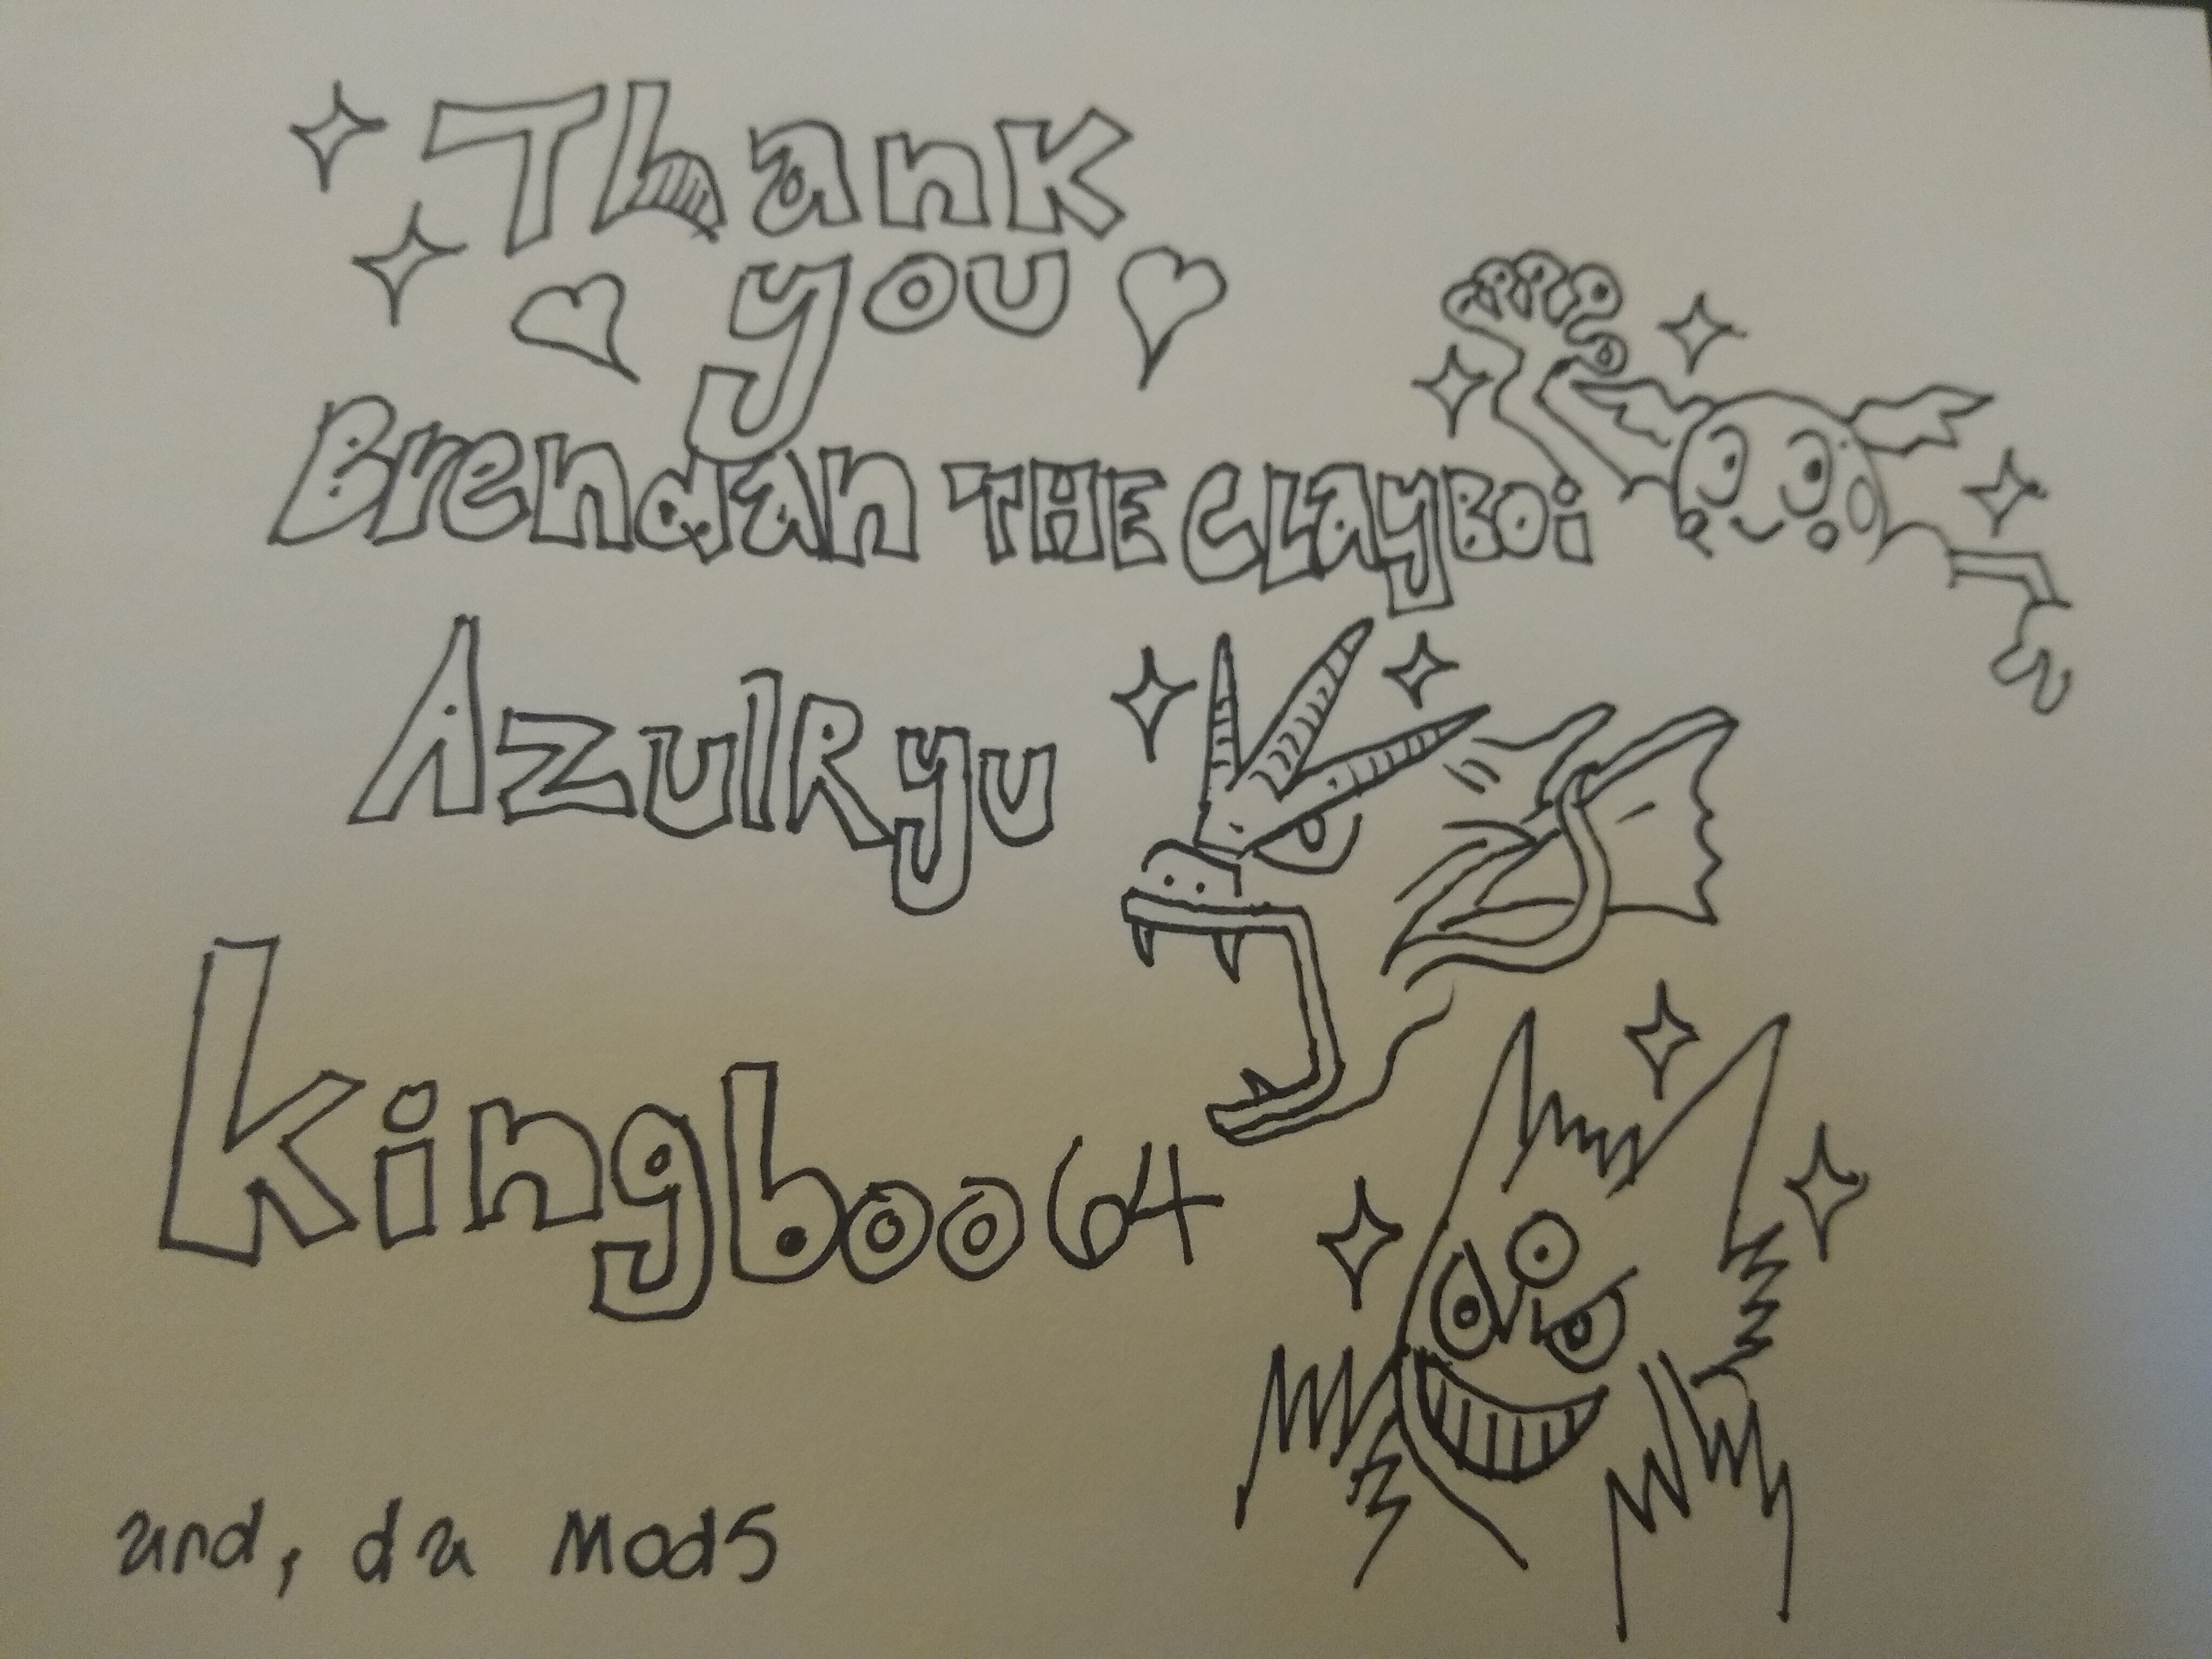 Thank
you
Brendan THE CLayBoi
AzulRyu
Kingboo64
and, da Mods